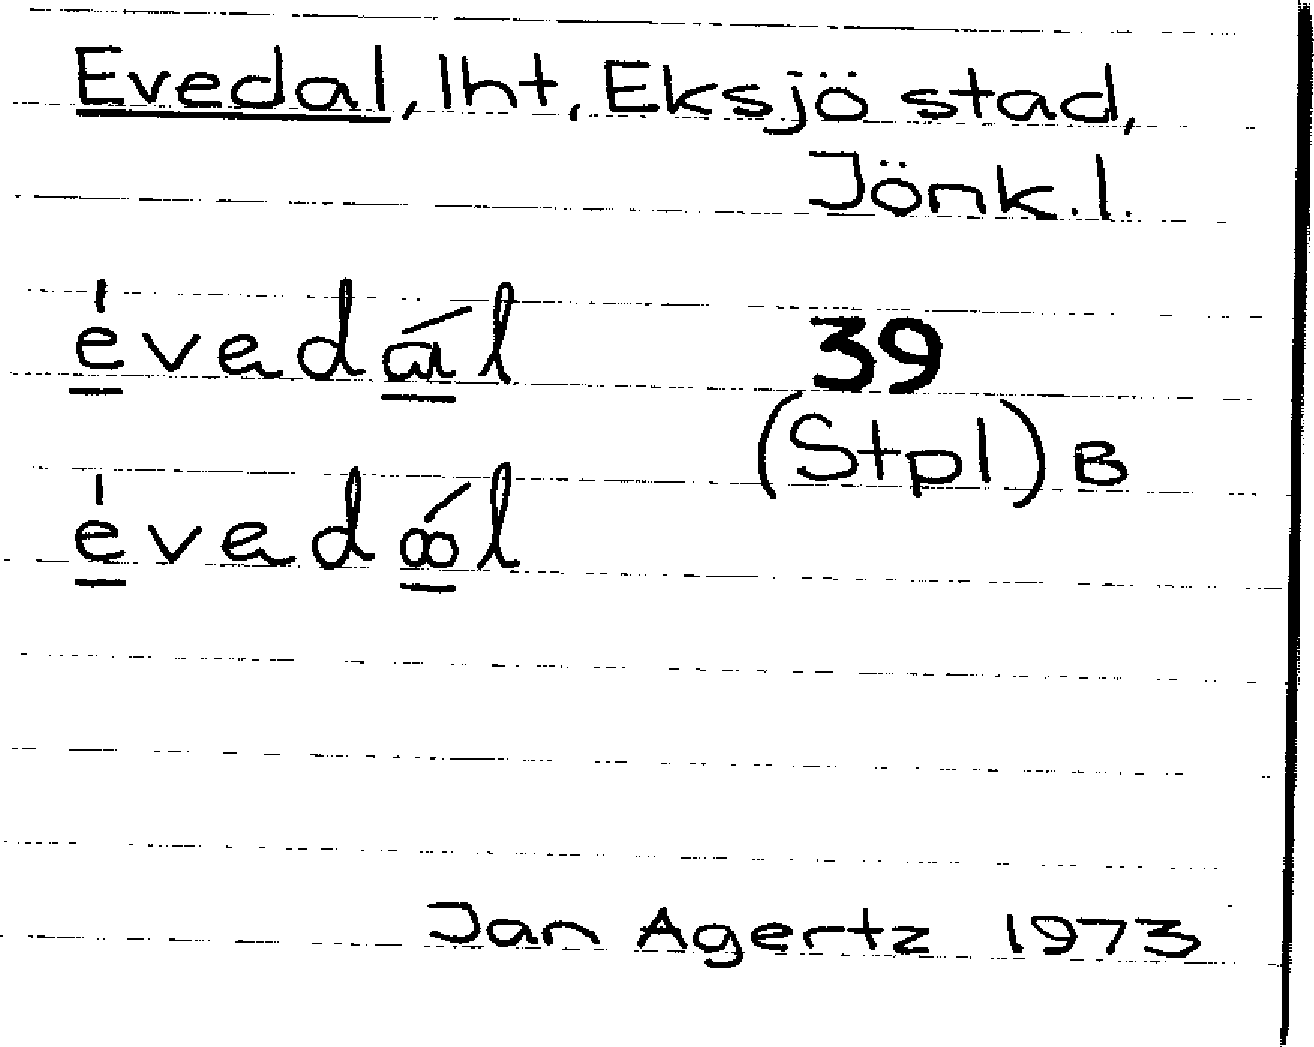 Evedal, lht, Eksjö stad,
Jönk. l.
évadál 39
(Stpl) B
évadól
Jan Agertz 1973